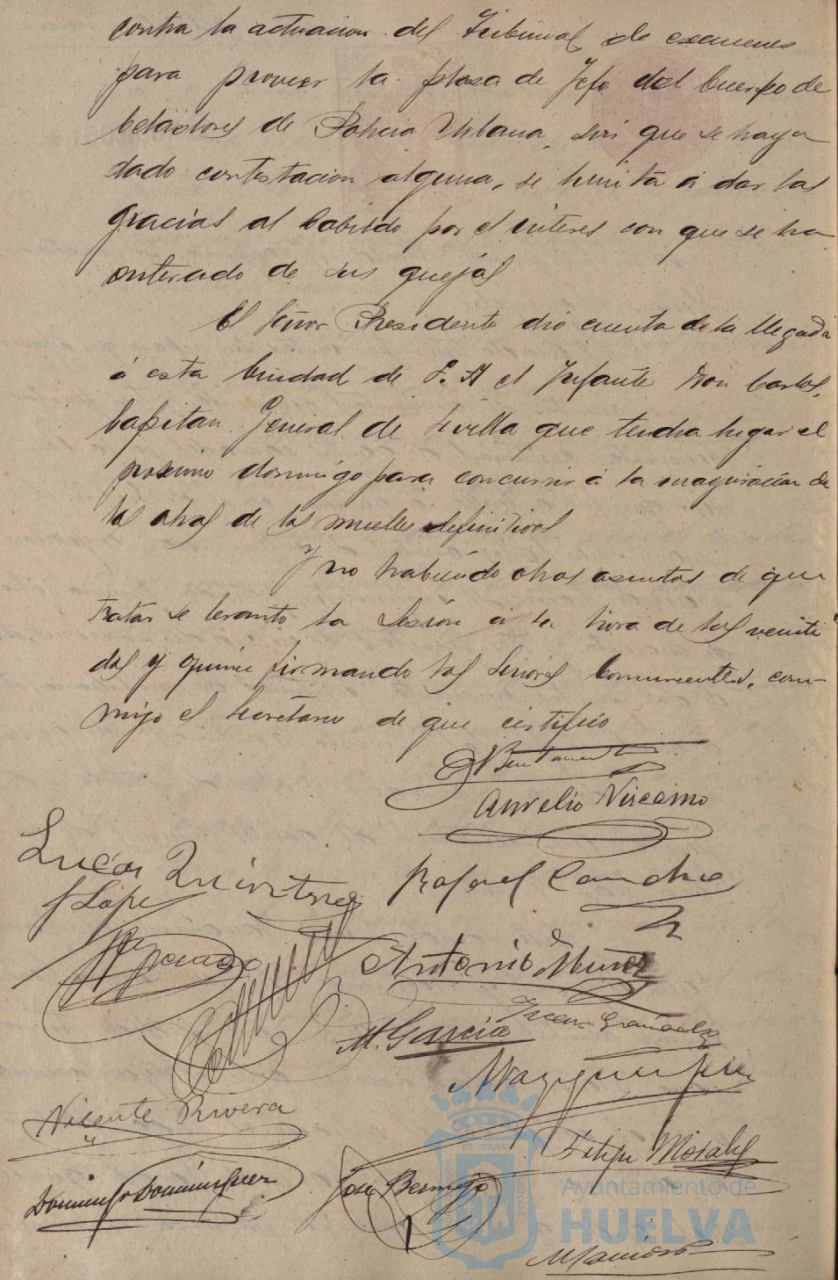 contra la actuacion del Tribunal de examenes
para proveer la plaza de Jefe del Cuerpo de
Celadores de Policia Urbana, sin que se haya
dado contestacion alguna, se limita á dar las
gracias al Cabildo por el interes con que se ha
enterado de sus quejas
El Señor Presidente dió cuenta de la llegada
á esta Ciudad de S. A el Infante Don Carlos,
Capitan General de Sevilla que tendra lugar el
proximo domingo para concurrir á la inauguración de
las obras de los muelles definitivos
Y no habiendo otros asuntos de que
tratar se levantó la Sesión á la hora de las veinti
dos y quince firmando los Señores Concurrentes, con-
migo el Secretario de que certifico
Aurelio Vizcaino
Lucas
Rafael
J Lópe
Antonio Muñoz
M. Garcia
Juan
Vicente Rivera
Felipe Morales
Domingo Dominguez
Jose Bermejo
Ayuntamiento de
HUELVA